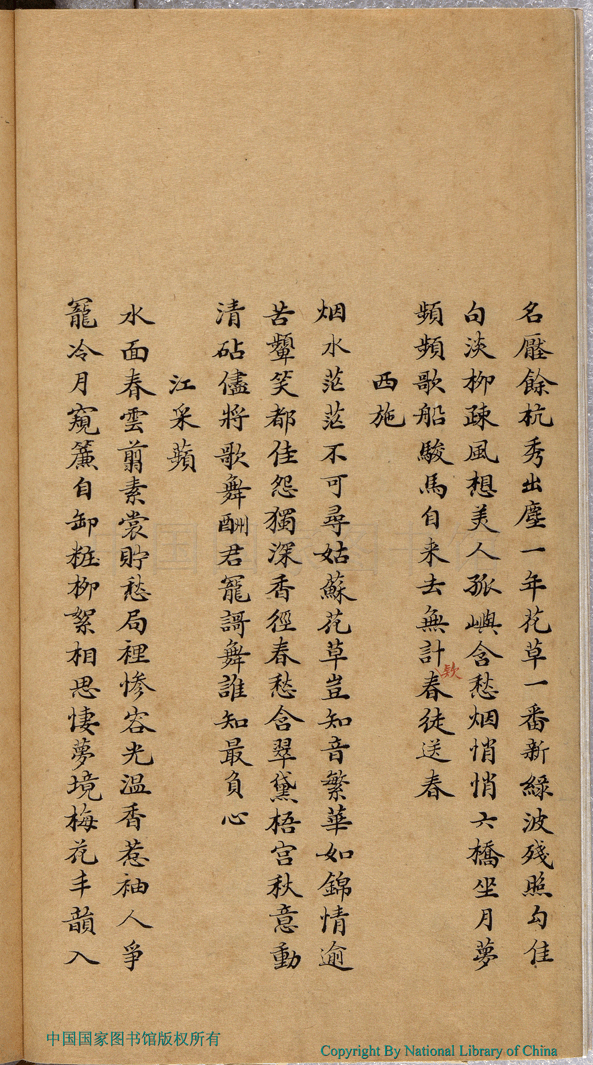 名壓餘杭秀出塵一年花草一番新緑波殘照勾佳
句淡栁疎風想美人孤嶼含愁烟悄悄六橋坐月夢
頻頻歌船駿馬自来去無計春徒送春
欵
西施
烟水茫茫不可尋姑蘇花草豈知音繁華如錦情逾
苦顰笑都佳怨獨深香徑春愁含翠黛梧宫秋意動
清砧儘將歌舞酬君寵謌舞誰知最負心
江采蘋
水面春雲翦素裳貯愁局裡惨容光温香惹袖人爭
寵冷月窺簾自卸粧栁絮相思悽夢境梅花丰韻入
中国国家图书馆版权所有
Copyright By National Library of China